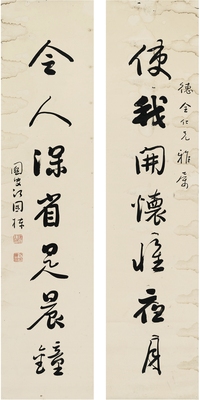 德全仁兄雅屬
使我開懷惟夜月
令人深省是晨鐘